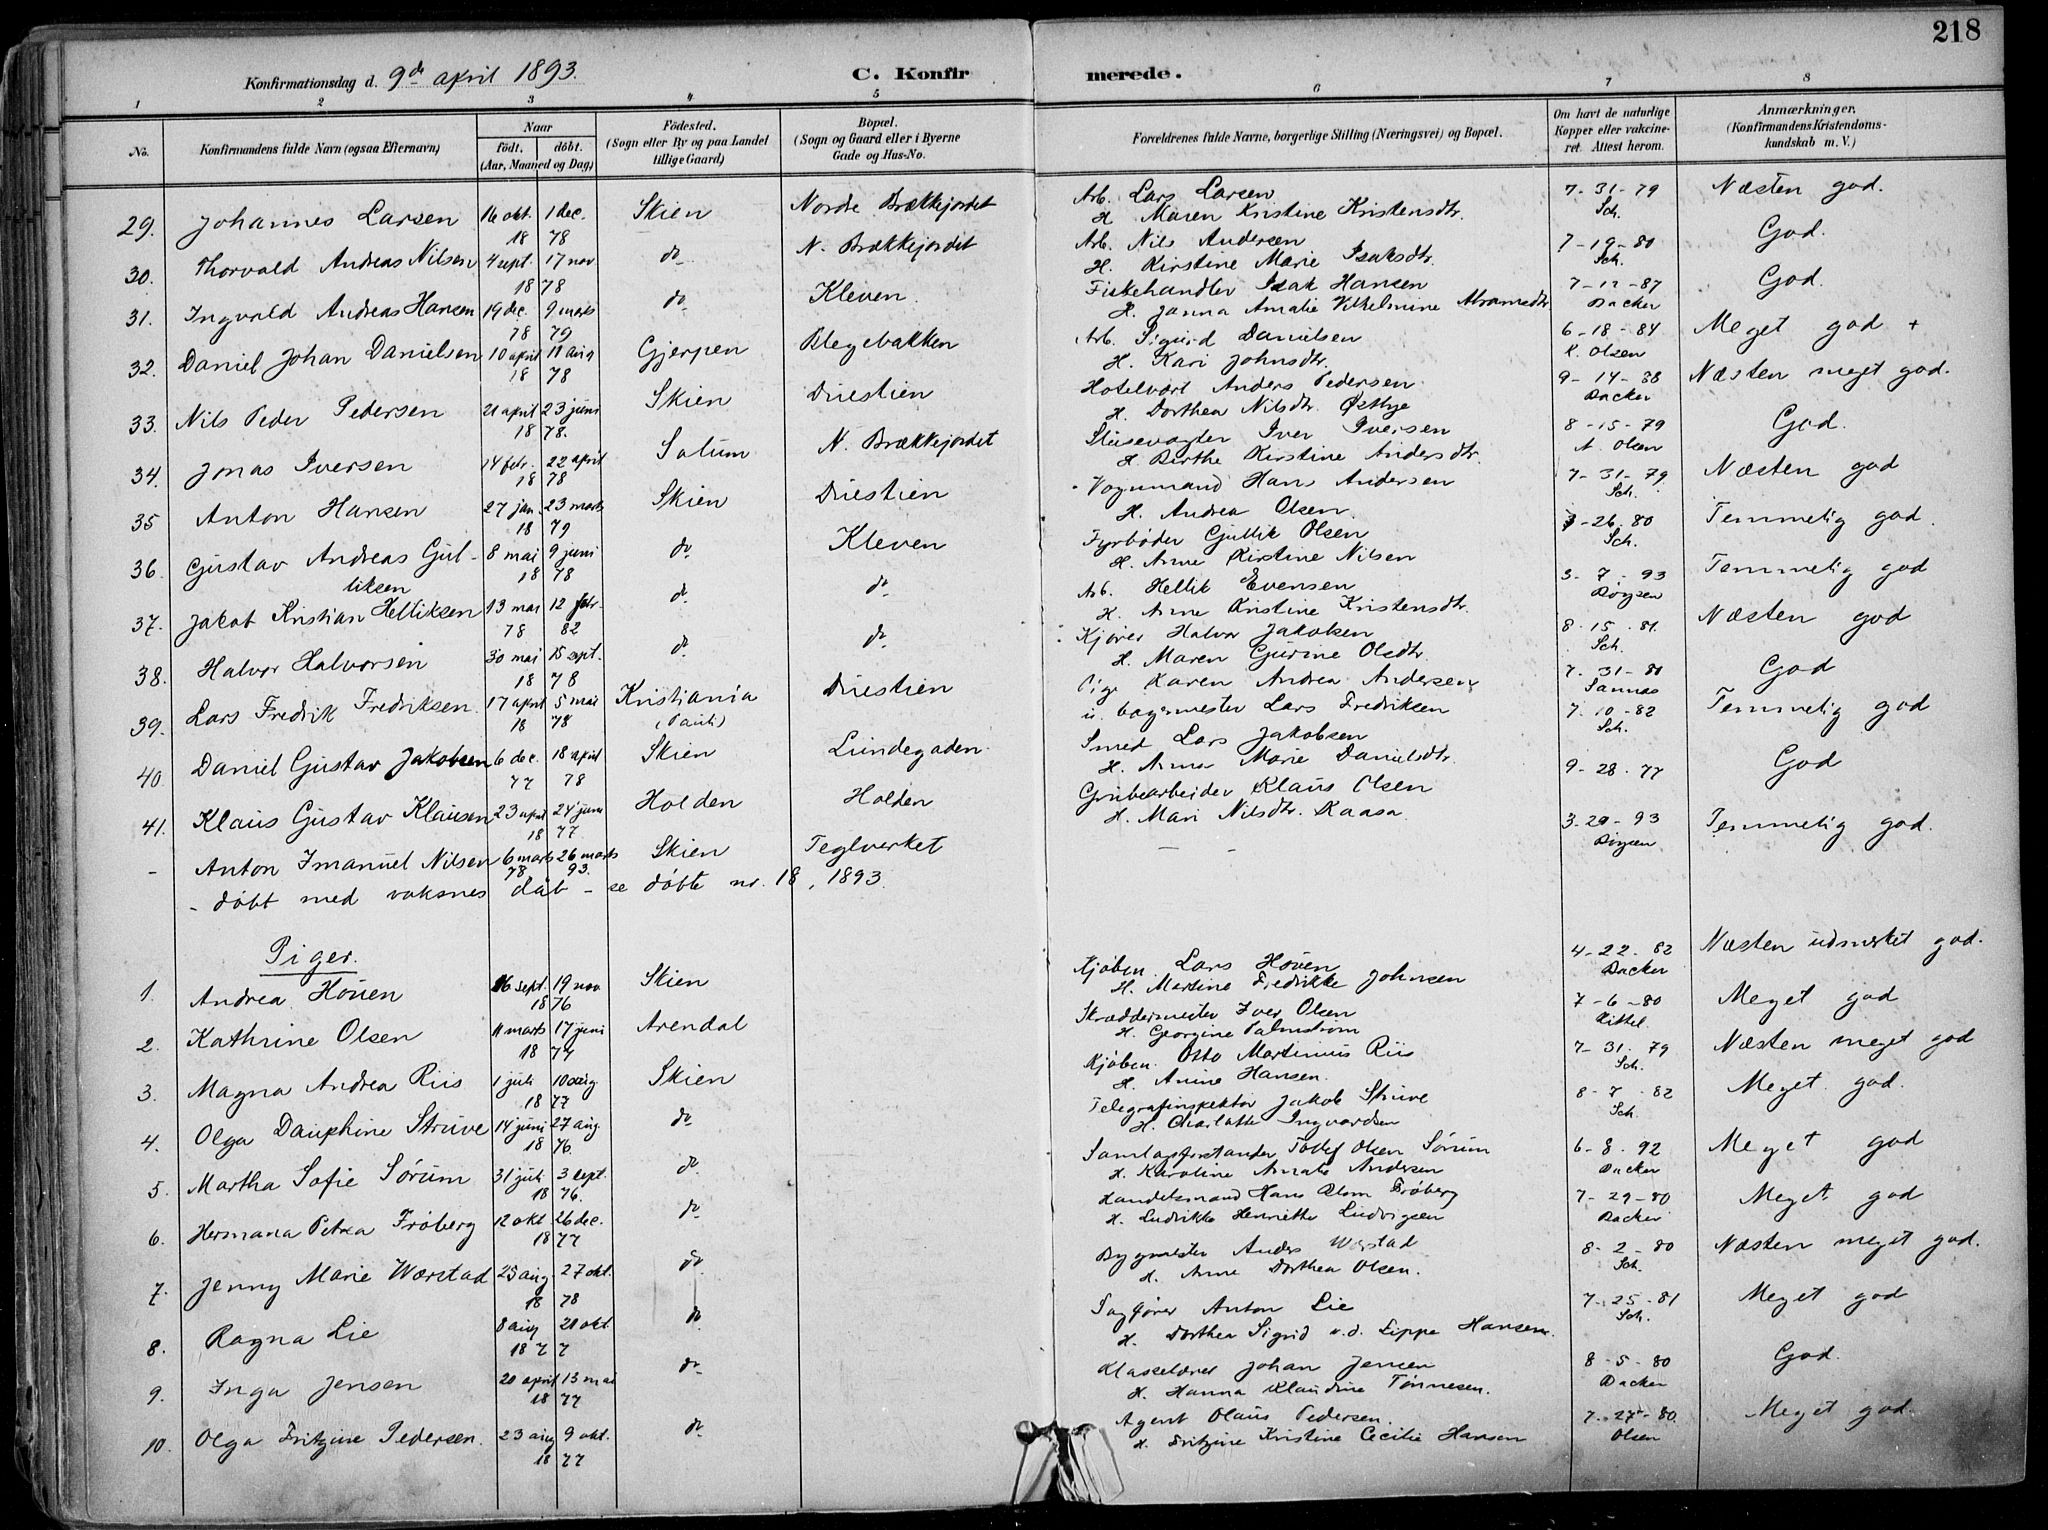 218
Konfirmationsdag d. 9de april 1893.
C. Konfirmerede.
1 2 3 4 5 6 7 8
No.
Konfirmandens fulde Navn (ogsaa Efternavn)
Naar
født. døbt.
(Aar, Maaned og Dag)
Fødested.
(Sogn eller By og paa Landet
tillige Gaard)
Bopæl.
(Sogn og Gaard eller i Byerne
Gade og Hus-No.
Forældrenes fulde Navne, borgerlige Stilling (Næringsvei) og Bopæl.
Om havt de naturlige
Kopper eller vakcineret.
Attest herom.
Anmærkninger.
(Konfirmandens Kristendomskundskab
m. V.)
29. Johannes Larsen 16 okt. 1 dec. Skien Nordre Brækkejordet Arb. Lars Larsen 7-31-79 Næsten god.
18 78 H. Maren Kristine Kristensdtr. Sch.
30. Thorvald Andreas Nilsen 4 sept. 17 nov do N. Brækkejordet Arb. Nils Andersen 7-19-80 God.
18 78 H. Kirstine Marie Isaksdtr. Sch.
31. Ingvald Andreas Hansen 19 dec. 9 marts do Kleven. Fiskehandler Isak Hansen 7-12-87 God.
78 79 H. Janna Amalie Vilhelmine Abramsdtr Backer
32. Daniel Johan Danielsen 10 april 11 aug Gjerpen Blegebakken Arb. Sigurd Danielsen 6-18-84 Meget god +
18 78 H. Kari Johnsdtr. K. Olsen
33. Nils Peder Pedersen 21 april 23 juni Skien Duestien Hotelvært Anders Pedersen 9-14-88 Næsten meget god.
18 78. H. Dorthea Nilsdtr. Østbye Backer
34. Jonas Iversen 14 febr. 22 april Solum N. Brækkejordet Slusevogter Iver Iversen 8-15-79 God.
18 78 H. Berthe Kirstine Andersdtr. A. Olsen
35 Anton Hansen 27 jan. 23 marts Skien Duestien Vognmand Hans Andersen 7-31-79 Næsten god
18 79 H. Andrea Olsen. Sch.
36. Gustav Andreas Gul- 8 mai 9 juni do Kleven Fyrbøder Gullik Olsen 3-26-80 Temmelig god.
liksen 18 78 H. Anne Kirstine Nilsen Sch.
37. Jakob Kristian Helliksen 13 mai 12 febr. do do Arb. Hellik Evensen 3-7-93 Temmelig god
78 82 H. Anne Kristine Kristensdtr.
38. Halvor Halvorsen 30 mai 15 sept. do do Kjører Halvor Jakobsen 8-15-81. Næsten god
18 78 H. Maren Gurine Olsdtr. Sch.
39. Lars Fredrik Fredriksen. 17 april 5 mai Kristiania Duestien Pige Karen Andrea Andersen 7-31-80 God
18 78 u. bagermester Lars Fredriksen Sannas
40 Daniel Gustav Jakobsen 6 dec. 18 april Skien Lundegaden. Smed Lars Jakobsen 7-10-82 Temmelig god
77 78 H. Anna Marie Danielsdtr. Sch.
41. Klaus Gustav Klausen 23 april 24 juni Holden Holden Grubearbeider Klaus Olsen 9-28-77 God
18 77 H. Mari Nilsdtr. Kaasa.
- Anton Imanuel Nilsen 6 marts 26 marts Skien Teglverket — - 3-29-93 Temmelig god.
78 93.
- døbt med voksnes dåb - se døbte nr. 18, 1893.
Piger.
1. Andrea Houen 16 sept. 19 nov Skien Kjøbm. Lars Houen 4-22-82 Næsten udmerket god.
18 76 H. Martine Fredrikke Johnsen Backer
2. Kathrine Olsen 11 marts 17 juni Arendal Skræddermester Iver Olsen 7-6-80 Meget god
18 77 H. Georgine Palmstrøm Kittel.
3. Magna Andrea Riis 1 juli 10 aug Skien Kjøbm. Otto Martinius Riis 7-31-79 Næsten meget god
18 77 H. Anine Hansen. Sch.
4. Olga Dauphine Struve 14 juni 27 aug. do Telegrafinspektør Jakob Struve 8-7-82 Meget god.
18 76. H. Charlotte Ingvardsen Sch.
5. Martha Sofie Sørum 31 juli 3 sept. do Samlagsforstander Tollef Olsen Sørum 6-8-92 Meget god
18 76. H. Karoline Amalie Andersen Backer
6. Hermana Petra Frøberg 12 okt 26 dec. do Handelsmand Hans Frøberg 7-29-80 Meget god
18 77 H. Ludvikke Henriette Ludvigsen Backer
7. Jenny Marie Wærstad 25 aug. 27 okt. do Bygmester Anders Wærstad 8-2-80 Næsten meget god.
18 78 H. Anne Dorthea Olsen. Sch.
8. Ragna Lie 8 aug 20 okt. do Sagfører Anton Lie 7-25-81 Meget god
18 77 H. Dorthea Sigrid v.d. Lippe Hansen. Sch.
9. Inga Jensen 20 april 13 mai do Klasselærer Johan Jensen 8-5-80 God.
18 77 H. Hanna Klaudine Tønnesen. Backer
10. Olga Fritzine Pedersen. 23 aug 9 okt. do Agent Olaus Pedersen. 7-27-80. Meget god.
18 77 H. Fritzine Kristine Cecilie Hansen Olsen